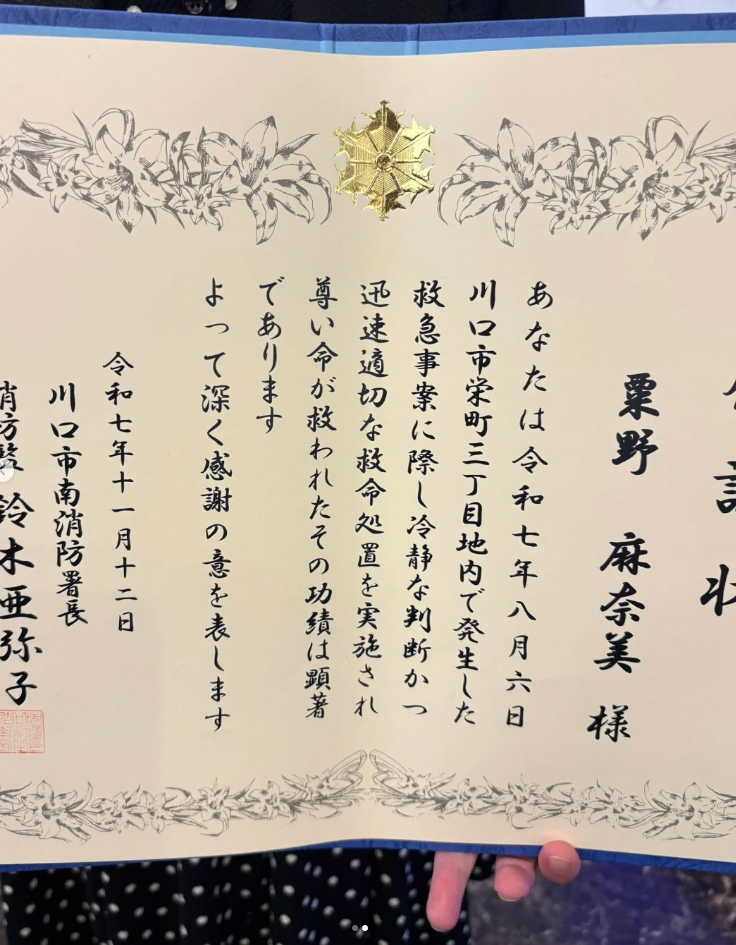 粟野 麻奈美 様
あなたは令和七年八月六日
川口市栄町三丁目地内で発生した
救急事案に際し冷静な判断かつ
迅速適切な救命処置を実施され
尊い命が救われたその功績は顕著
であります
よって深く感謝の意を表します
令和七年十一月十二日
川口市南消防署長
鈴木亜弥子